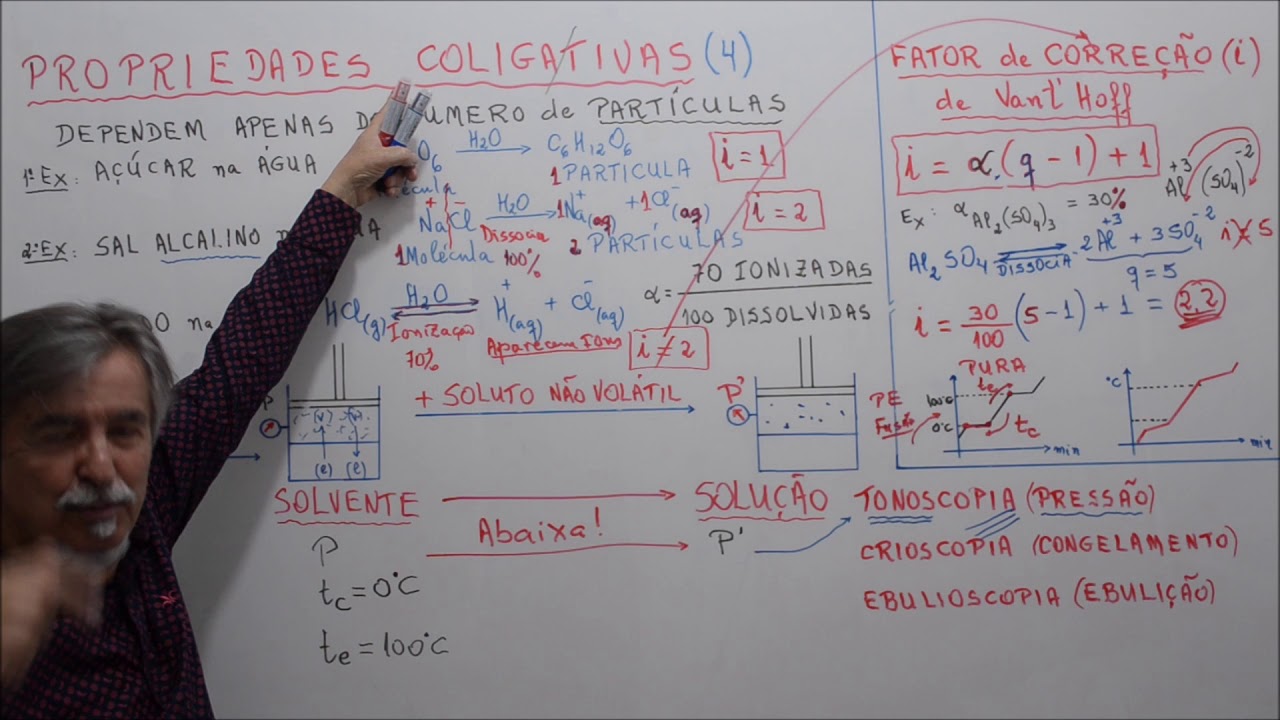 PROPRIEDADES COLIGATIVAS (4)
DEPENDEM APENAS DO NUMERO de PARTÍCULAS
1º Ex: AÇÚCAR na ÁGUA
O6 H2O C6H12O6
1 PARTICULA
i = 1
2º Ex: SAL ALCALINO
+ -
NaCl H2O 1Na(aq) + 1Cl-(aq)
i = 2
1 Molécula 100% Dissocia 2 PARTÍCULAS
HCl(g) H2O H+(aq) + Cl-(aq)
Ionização
70%
Aparecem Ions
i ≠ 2
α = 70 IONIZADAS
100 DISSOLVIDAS
P
(v) (v)
(l) (l)
+ SOLUTO NÃO VOLÁTIL
P'
SOLVENTE
Abaixa!
SOLUÇÃO
P
P'
tc = 0°C
te = 100°C
TONOSCOPIA (PRESSÃO)
CRIOSCOPIA (CONGELAMENTO)
EBULIOSCOPIA (EBULIÇÃO)
FATOR de CORREÇÃO (i)
de Vant' Hoff
i = α.(q - 1) + 1
+3 -2
Al (SO4)
Ex: α Al2(SO4)3 = 30%
Al2SO4 DISSOCIA 2Al+3 + 3SO4-2 i 5
q = 5
i = 30/100 (5 - 1) + 1 = 2,2
PURA
PE
Fusão
100°C
0°C
te
tc
min
°C
min